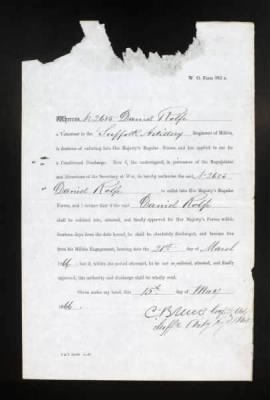 W. O. Form 983 a.
Whereas, No 2606 Daniel Rolfe
a Volunteer in the Suffolk Artillery Regiment of Militia,
is desirous of enlisting into Her Majesty's Regular Forces, and has applied to me for
a Conditional Discharge. Now I, the undersigned, in pursuance of the Regulations
and directions of the Secretary at War, do hereby authorize the said
Daniel Rolfe to enlist into Her Majesty's Regular
Forces, and I declare that if the said Daniel Rolfe
shall be enlisted into, attested, and finally approved for Her Majesty's Forces within
fourteen days from the date hereof, he shall be absolutely discharged, and become free
from his Militia Engagement, bearing date the 28th day of March
but if, within the period aforesaid, he be not so enlisted, attested, and finally
approved, this authority and discharge shall be wholly void.
Given under my hand, this 15th day of May